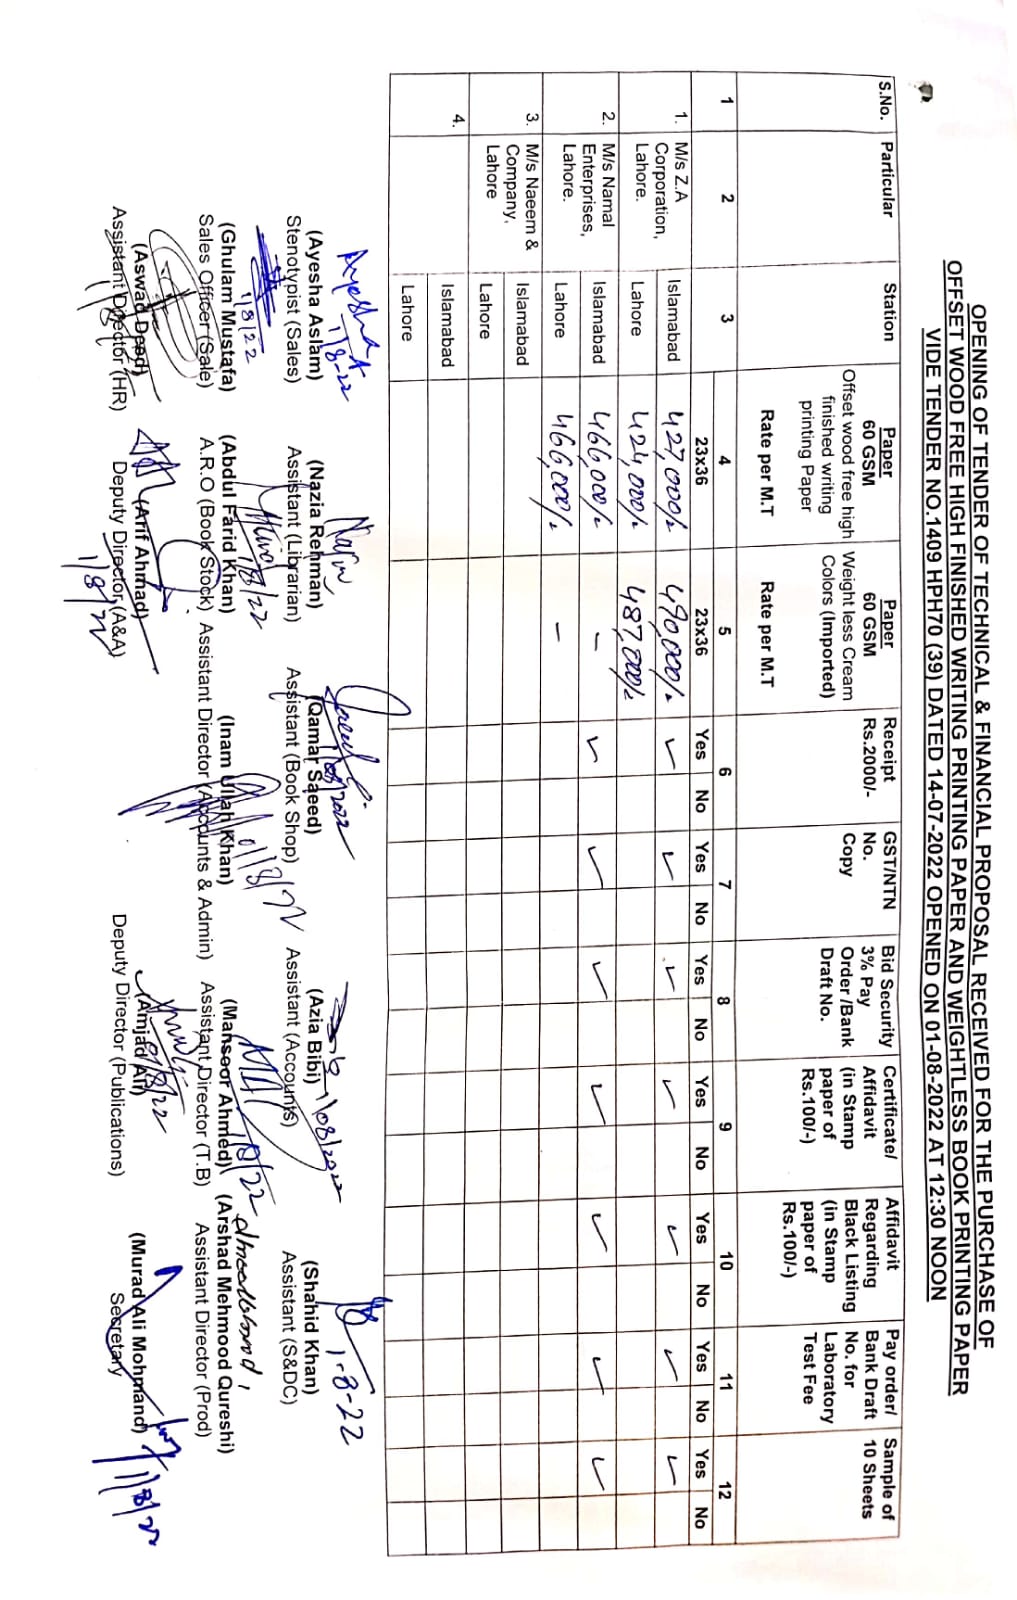 OPENING OF TENDER OF TECHNICAL & FINANCIAL PROPOSAL RECEIVED FOR THE PURCHASE OF
OFFSET WOOD FREE HIGH FINISHED WRITING PRINTING PAPER AND WEIGHTLESS BOOK PRINTING PAPER
VIDE TENDER NO.1409 HPH70 (39) DATED 14-07-2022 OPENED ON 01-08-2022 AT 12:30 NOON
S.No.
Particular
Station
Paper
60 GSM
Offset wood free high
finished writing
printing Paper
Rate per M.T
Paper
60 GSM
Weight less Cream
Colors (Imported)
Rate per M.T
Receipt
Rs.2000/-
GST/NTN
No.
Copy
Bid Security
3% Pay
Order /Bank
Draft No.
Certificate/
Affidavit
(in Stamp
paper of
Rs.100/-)
Affidavit
Regarding
Black Listing
(in Stamp
paper of
Rs.100/-)
Pay order/
Bank Draft
No. for
Laboratory
Test Fee
Sample of
10 Sheets
1 2 3 4 5 6 7 8 9 10 11 12
23x36 23x36 Yes No Yes No Yes No Yes No Yes No Yes No Yes No
1. M/s Z.A
Corporation,
Lahore.
Islamabad 427,000/- 490,000/- ✓ ✓ ✓ ✓ ✓ ✓ ✓
Lahore 424,000/- 487,000/-
2. M/s Namal
Enterprises,
Lahore.
Islamabad 466,000/- – ✓ ✓ ✓ ✓ ✓ ✓ ✓
Lahore 466,000/- –
3. M/s Naeem &
Company,
Lahore
Islamabad
Lahore
4.
Islamabad
Lahore
Ayesha A
1/8-22
(Ayesha Aslam)
Stenotypist (Sales)
(Nazia Rehman)
Assistant (Librarian)
1/08/2022
(Qamar Saeed)
Assistant (Book Shop)
1/08/2022
(Azia Bibi)
Assistant (Accounts)
1-8-22
(Shahid Khan)
Assistant (S&DC)
1/8/22
(Ghulam Mustafa)
Sales Officer (Sale)
1/8/22
(Abdul Farid Khan)
A.R.O (Book Stock)
01/8/22
(Inam Ullah Khan)
Assistant Director (Accounts & Admin)
1/8/22
(Mansoor Ahmed)
Assistant Director (T.B)
(Arshad Mehmood Qureshi)
Assistant Director (Prod)
(Aswad Deed)
Assistant Director (HR)
(Arif Ahmad)
Deputy Director (A&A)
1/8/22
(Amjad Ali)
Deputy Directior (Publications)
(Murad Ali Mohmand)
Secretary
1/8/22